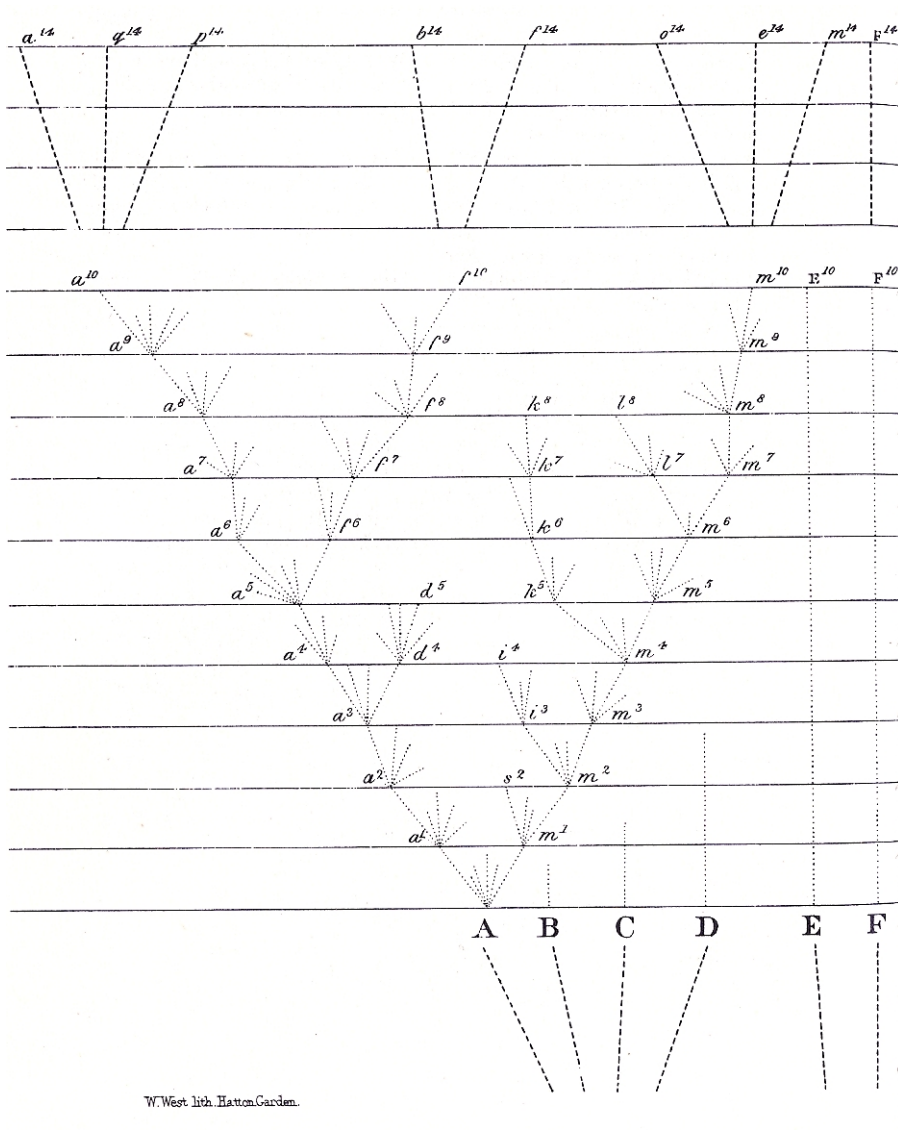 a¹⁴ q¹⁴ p¹⁴ b¹⁴ f¹⁴ o¹⁴ e¹⁴ m¹⁴ F¹⁴
a¹⁰ f¹⁰ m¹⁰ E¹⁰ F¹⁰
a⁹ f⁹ m⁹
a⁸ f⁸ k⁸ l⁸ m⁸
a⁷ f⁷ k⁷ l⁷ m⁷
a⁶ f⁶ k⁶ m⁶
a⁵ d⁵ k⁵ m⁵
a⁴ d⁴ i⁴ m⁴
a³ i³ m³
a² s² m²
a¹ m¹
A B C D E F
W. West lith. Hatton Garden.